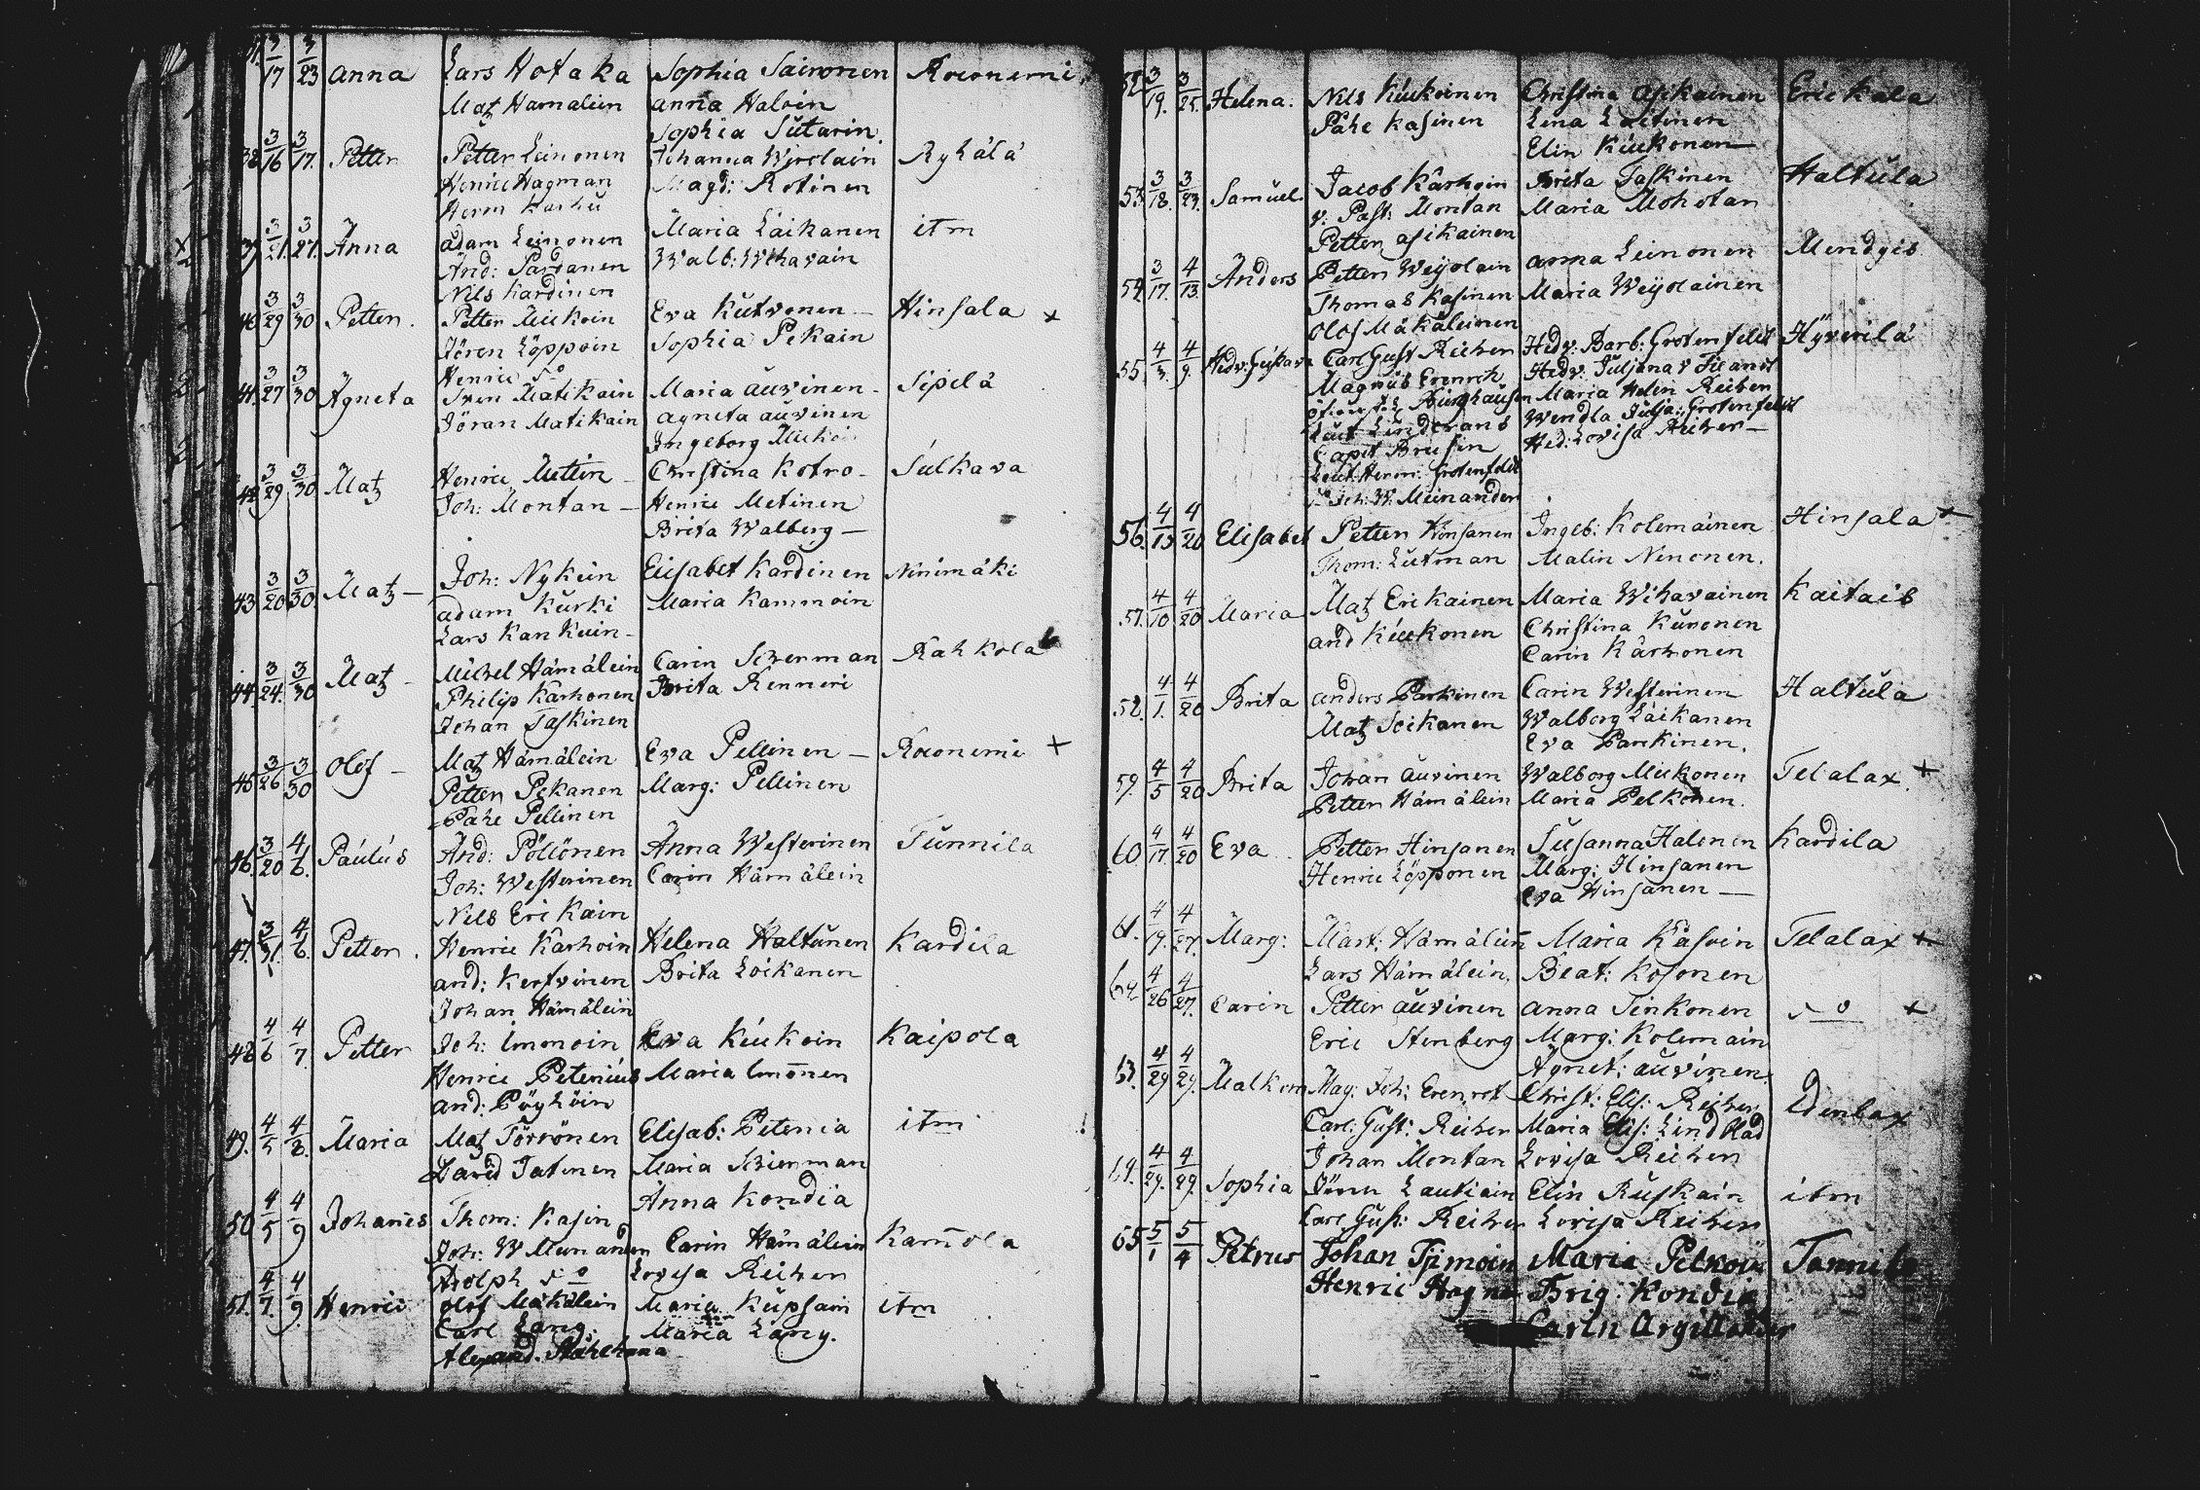 37. 3/17 3/23 Anna Lars Hotaka Sophia Sairanen
Matz Hamalein Anna Haloin
Sophia Sutarin
38. 3/16 3/17. Petter Petter Leinonen Johanna Ryhälä
Henric Hagman Magd: Rotinen
Herm Karhu
39. 3/21. 3/27. Anna Adam Leinonen Maria Laikanen itm
And: Partanen Walb: Wihavain
Nils Kardinen
40 3/29 3/30 Petter. Petter Miikoin Eva Kutvonen — Hinsala x
Jören Löppoin Sophia Pekain
Henric d:o
41. 3/27 3/30 Agneta Sven Matikain Maria Auvinen - Sipilä
Jöran Matikain Agneta Auvinen
Ingeborg
42. 3/29 3/30 Matz Henric Mettin Christina Kotro - Sulkava
Joh: Montan — Henric Metinen
Brita Walberg —
43. 3/20 3/30 Matz — Joh: Nykein Elisabet Kardinen Ninimäki
Adam Kurki Maria Kammoin
Lars Kankuin -
44. 3/24. 3/30 Matz - Michel Hämälein Carin Scherman Rahkola
Philip Karhonen Brita Renneri
Johan Taskinen
45 3/26 3/30 Olof - Matz Hämälein Eva Pellinen — Roconemi +
Petter Pekanen Marg: Pellinen
Påhl Pellinen
46. 3/20 4/6. Paulus And: Pöllönen Anna Westerinen Tunnila
Joh: Westerinen Carin Hämälein
Nils Erikain
47. 3/31. 4/6. Petter. Henric Karhoin Helena Haltunen Kardila
And: Kerfvinen Brita Loikanen
Johan Hämälein
48 4/6 4/7. Petter Joh: Imonoin Eva Kiukoin Kaipola
Henric Petenius Maria Imonen
And: Pöyhöin
49. 4/5 4/8. Maria Matz Törrönen Elisab: Petenia itm
David Tatinen Maria Schierman
Anna Kondia
50 4/5 4/9 Johanes Thom: Kasin Carin Hämälein Kam̄ola
Joh: W Munander
Adolph d:o Lovisa Reiher
51. 4/7. 4/9. Henric Olof Makälein Maria Kupsain itm
Carl Lang: Maria Lang.
Alexand.
52. 3/19. 3/25. Helena. Nils Kiukoinen Christina Asikainen Erickala
Påhl Kasinen Lena Laitinen
Elin Kiukonen —
53. 3/18. 3/23. Samuel. Jacob Kärhoin Brita Taskinen Haltula
v: Past: Montan Maria Mohotar
Petter Asikainen
54. 3/17. 4/13. Anders Petter Weijolain Anna Leinonen Mendgis
Thomas Kasinen Maria Weijolainen
Olof Makäleinen
55. 4/3. 4/9. Carl Gust Reiher Hedv: Barb: Grotenfelt Hyverilä
Magnus Erenroth Hedv: Juljana v
Burghausen Maria Helen Reiher
Leut Linderans Wendla Julja: Grotenfelt
Capit Brusin Hed: Lovisa Reiher —
Leut: Herm: Grotenfelt
d:o Joh: W: Meinander
56. 4/15 4/20 Elisabet Petter Hinsanen Ingeb: Kolemainen Hinsala +
Thom: Lutman Malin Nenonen.
57. 4/10 4/20 Maria Matz Erikainen Maria Wihavainen Kaitais
And Kiukonen Christina Kuronen
Carin Kärhonen
58. 4/1. 4/20 Brita Anders Parkinen Carin Westerinen Haltula
Matz Soikanen Walborg Laikanen
Eva Parkinen.
59. 4/5 4/20 Brita Johan Auvinen Walborg Miikonen Telalax. +
Petter Hämälein Maria Pelkonen.
60 4/17 4/20 Eva Petter Hinsanen Susanna Halonen Kardila
Henric Löpponen Marg: Hinsanen
Eva Hinsanen —
61. 4/19. 4/27. Marg: Mart: Hämälein Maria Käsoin Telalax +
Lars Hämälein Beat: Kosonen
62 4/26 4/27. Carin Petter Auvinen Anna Tinkonen d:o +
Eric Stenberg Marg: Kolemain
Agnet: Auvinen.
63. 4/29 4/29. Malkom Maj: Joh: Erenrot Christ: Elis: Reiher
Carl: Gust: Reiher Maria Elis: Lindblad
Johan Montan Lovisa Reiher
64. 4/29. 4/29. Sophia Jören Lautiain Elin Ruskain itm
Carl Gust: Reiher Lovisa Reiher
65 5/1 5/4 Petrus Johan Timoin Maria Tannila
Henric Brig: Kondia
Carin